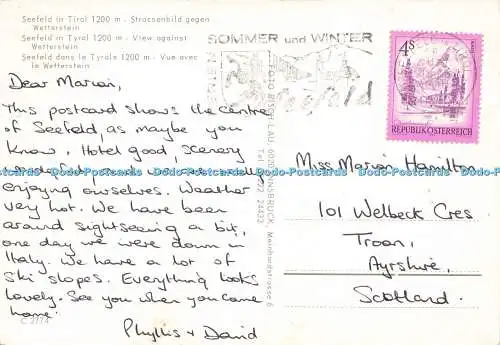 Seefeld in Tirol 1200 m - Strassenbild gegen
Wetterstein
Seefeld in Tyrol 1200 m - View against
Wetterstein
Seefeld dans le Tyrole 1200 m - Vue avec
le Wetterstein
SOMMER und WINTER
Seefeld
4S
REPUBLIK ÖSTERREICH
Dear Marion,
This postcard shows the centre
of Seefeld, as maybe you
know. Hotel good, scenery
wonderful and we are really
enjoying ourselves. Weather
very hot. We have been
around sightseeing a bit,
one day we were down in
Italy. We have a lot of
ski slopes. Everything looks
lovely. See you when you come
home.
Phyllis + David
Miss Marion Hamilton
101 Welbeck Cres
Troon,
Ayrshire,
Scotland.
INNSBRUCK, Meinhardstrasse 6
24433
Dodo-Postcards Dodo-Postcards Dodo-Postcards Dodo-Postcards